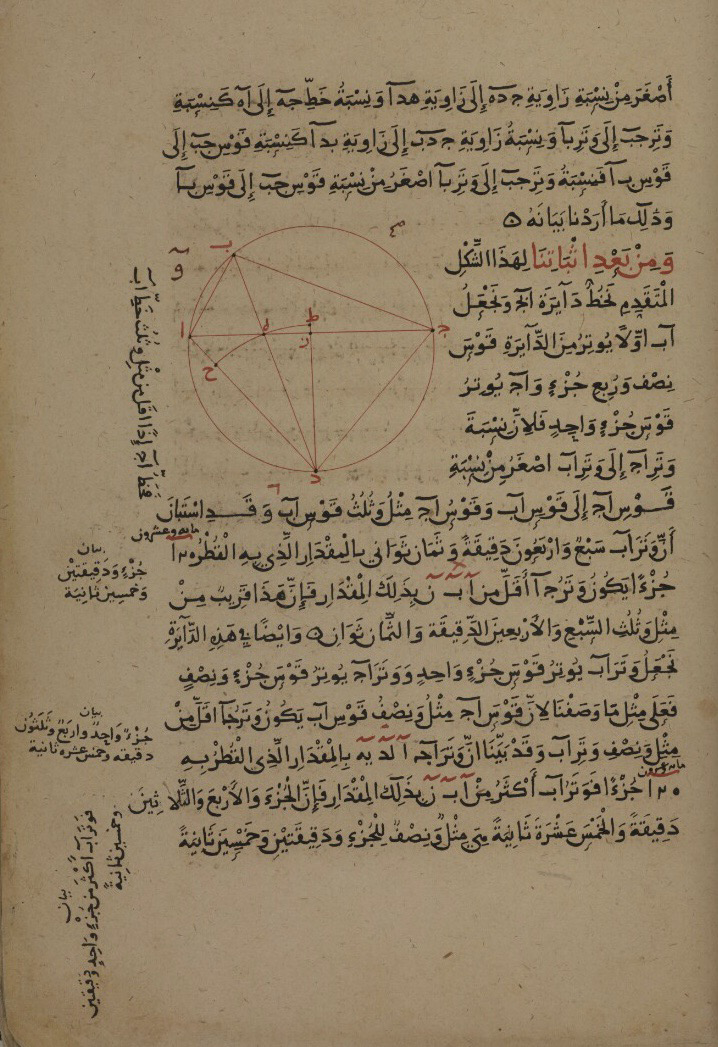 أصغر من نسبة زاوية جده إلى زاوية هدا ونسبة خط جه إلى اه كنسبة
وتر جب إلى وتر با ونسبة زاوية جدب إلى زاوية بدا كنسبة قوس جب إلى
قوس با فنسبة وتر جب إلى وتر با اصغر من نسبة قوس جب إلى قوس با
وذلك ما أردنا بيانه ه
ومن بعد اثباتنا لهذا الشكل
المتقدم نخط دايرة ابج ونجعل
اب اولا يوتر من الدايرة قوس
نصف وربع جزء واج يوتر
قوس جزء واحد فلان نسبة
وتر اج إلى وتر اب اصغر من نسبة
قوس اج إلى قوس اب وقوس اج مثل وثلث قوس اب وقد استبان
أن وتر اب سبع واربعون دقيقة وثمان ثواني بالمقدار الذي به القطر
جزءا يكون وتر جا أقل من ا ب ن بذلك المقدار فإن هذا قريب من
مثل وثلث السبع والأربعين الدقيقة والثمان ثوان ه وايضا في هذه الدايرة
نجعل وتر اب يوتر قوس جزء واحد ووتر اج يوتر قوس جزء ونصف
فعلى مثل ما وصفنا لان قوس اج مثل ونصف قوس اب يكون وتر جا اقل من
مثل ونصف وتر اب وقد بينا ان وتر اج ا لد يه بالمقدار الذى القطر به
جزءا فوتر اب أكثر من ا ب ن بذلك المقدار فإن الجزء والأربع والثلاثين
دقيقة والخمس عشرة ثانية هي مثل ونصف للجزء ودقيقتين وخمسين ثانية
ب
ا
ه
ط
ن
ج
ح
د
مايه وعشرون
بيان
جزء ودقيقتين
وخمسين ثانية
بيان
جزء واحد واربع وثلثون
دقيقه وخمس عشره ثانية
مايه وعشرون
اج إذا اقل من مثل وثلث خط اب
بيان
فوتر اب أكثر من جزء واحد ودقيقتين
وخمسين ثانية